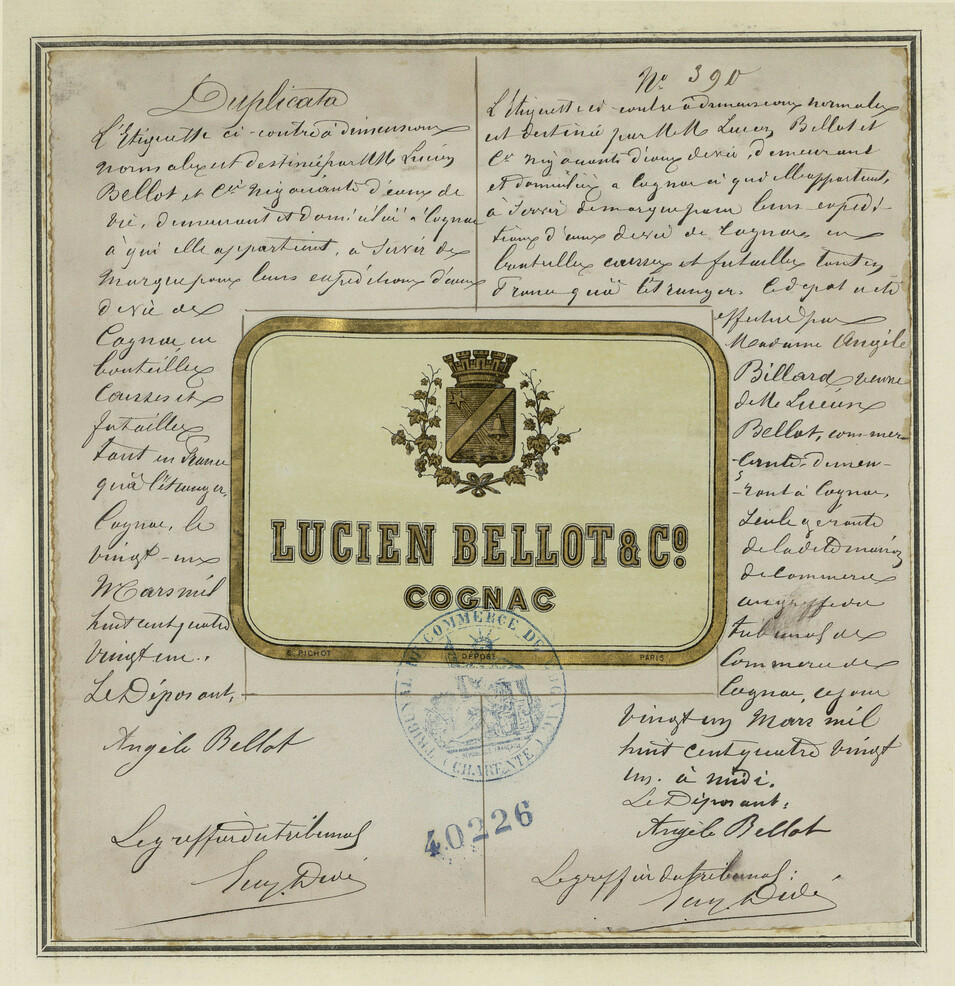 Duplicata
L'Etiquette ci-contre à dimensions
normales est destinée par MM Lucien
Bellot et Cie négociants d'eaux de
vie, demeurant et domiciliés à Cognac
à qui elle appartient, à servir de
marque pour leurs expéditions d'eaux
de vie de
Cognac en
bouteilles
caisses et
futailles
tant en France
qu'à l'étranger.
Cognac, le
vingt-un
Mars mil
huit cent quatre
vingt un.
Le Déposant,
Angèle Bellot
Le greffier du tribunal
No 390
L'Etiquette ci-contre à dimensions normales
est destinée par MM Lucien Bellot et
Cie négociants d'eaux de vie, demeurant
et domiciliés à Cognac à qui elle appartient,
à servir de marque pour leurs expédi-
tions d'eaux de vie de Cognac en
bouteilles caisses et futailles tant en
France qu'à l'étranger. Ce dépot a été
effectué par
Madame Angèle
Billard veuve
de Mr Lucien
Bellot, commer-
çante demeu-
rant à Cognac,
seule gérante
de la dite maison
de commerce
au greffe du
tribunal de
Commerce de
Cognac, ce jour
vingt un Mars mil
huit cent quatre vingt
un. à midi.
Le Déposant:
Angèle Bellot
Le greffier du tribunal:
LUCIEN BELLOT & Co
COGNAC
E. PICHOT
DÉPOSÉ
PARIS
TRIBUNAL DE COMMERCE DE COGNAC
(CHARENTE)
RÉPUBLIQUE FRANÇAISE
40226